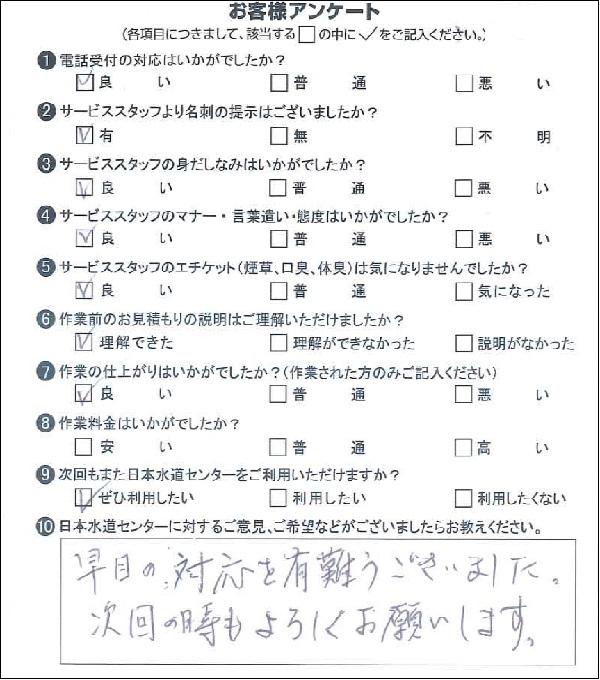 お客様アンケート
(各項目につきまして、該当する□の中に✓をご記入ください。)
❶ 電話受付の対応はいかがでしたか？
☑ 良　い　□ 普　通　□ 悪　い
❷ サービススタッフより名刺の提示はございましたか？
☑ 有　□ 無　□ 不　明
❸ サービススタッフの身だしなみはいかがでしたか？
☑ 良　い　□ 普　通　□ 悪　い
❹ サービススタッフのマナー・言葉遣い・態度はいかがでしたか？
☑ 良　い　□ 普　通　□ 悪　い
❺ サービススタッフのエチケット(煙草、口臭、体臭)は気になりませんでしたか？
☑ 良　い　□ 普　通　□ 気になった
❻ 作業前のお見積もりの説明はご理解いただけましたか？
☑ 理解できた　□ 理解ができなかった　□ 説明がなかった
❼ 作業の仕上がりはいかがでしたか？(作業された方のみご記入ください)
☑ 良　い　□ 普　通　□ 悪　い
❽ 作業料金はいかがでしたか？
□ 安　い　□ 普　通　□ 高　い
❾ 次回もまた日本水道センターをご利用いただけますか？
☑ ぜひ利用したい　□ 利用したい　□ 利用したくない
❿ 日本水道センターに対するご意見、ご希望などがございましたらお教えください。
早目の対応を有難うございました。
次回の時もよろしくお願いします。